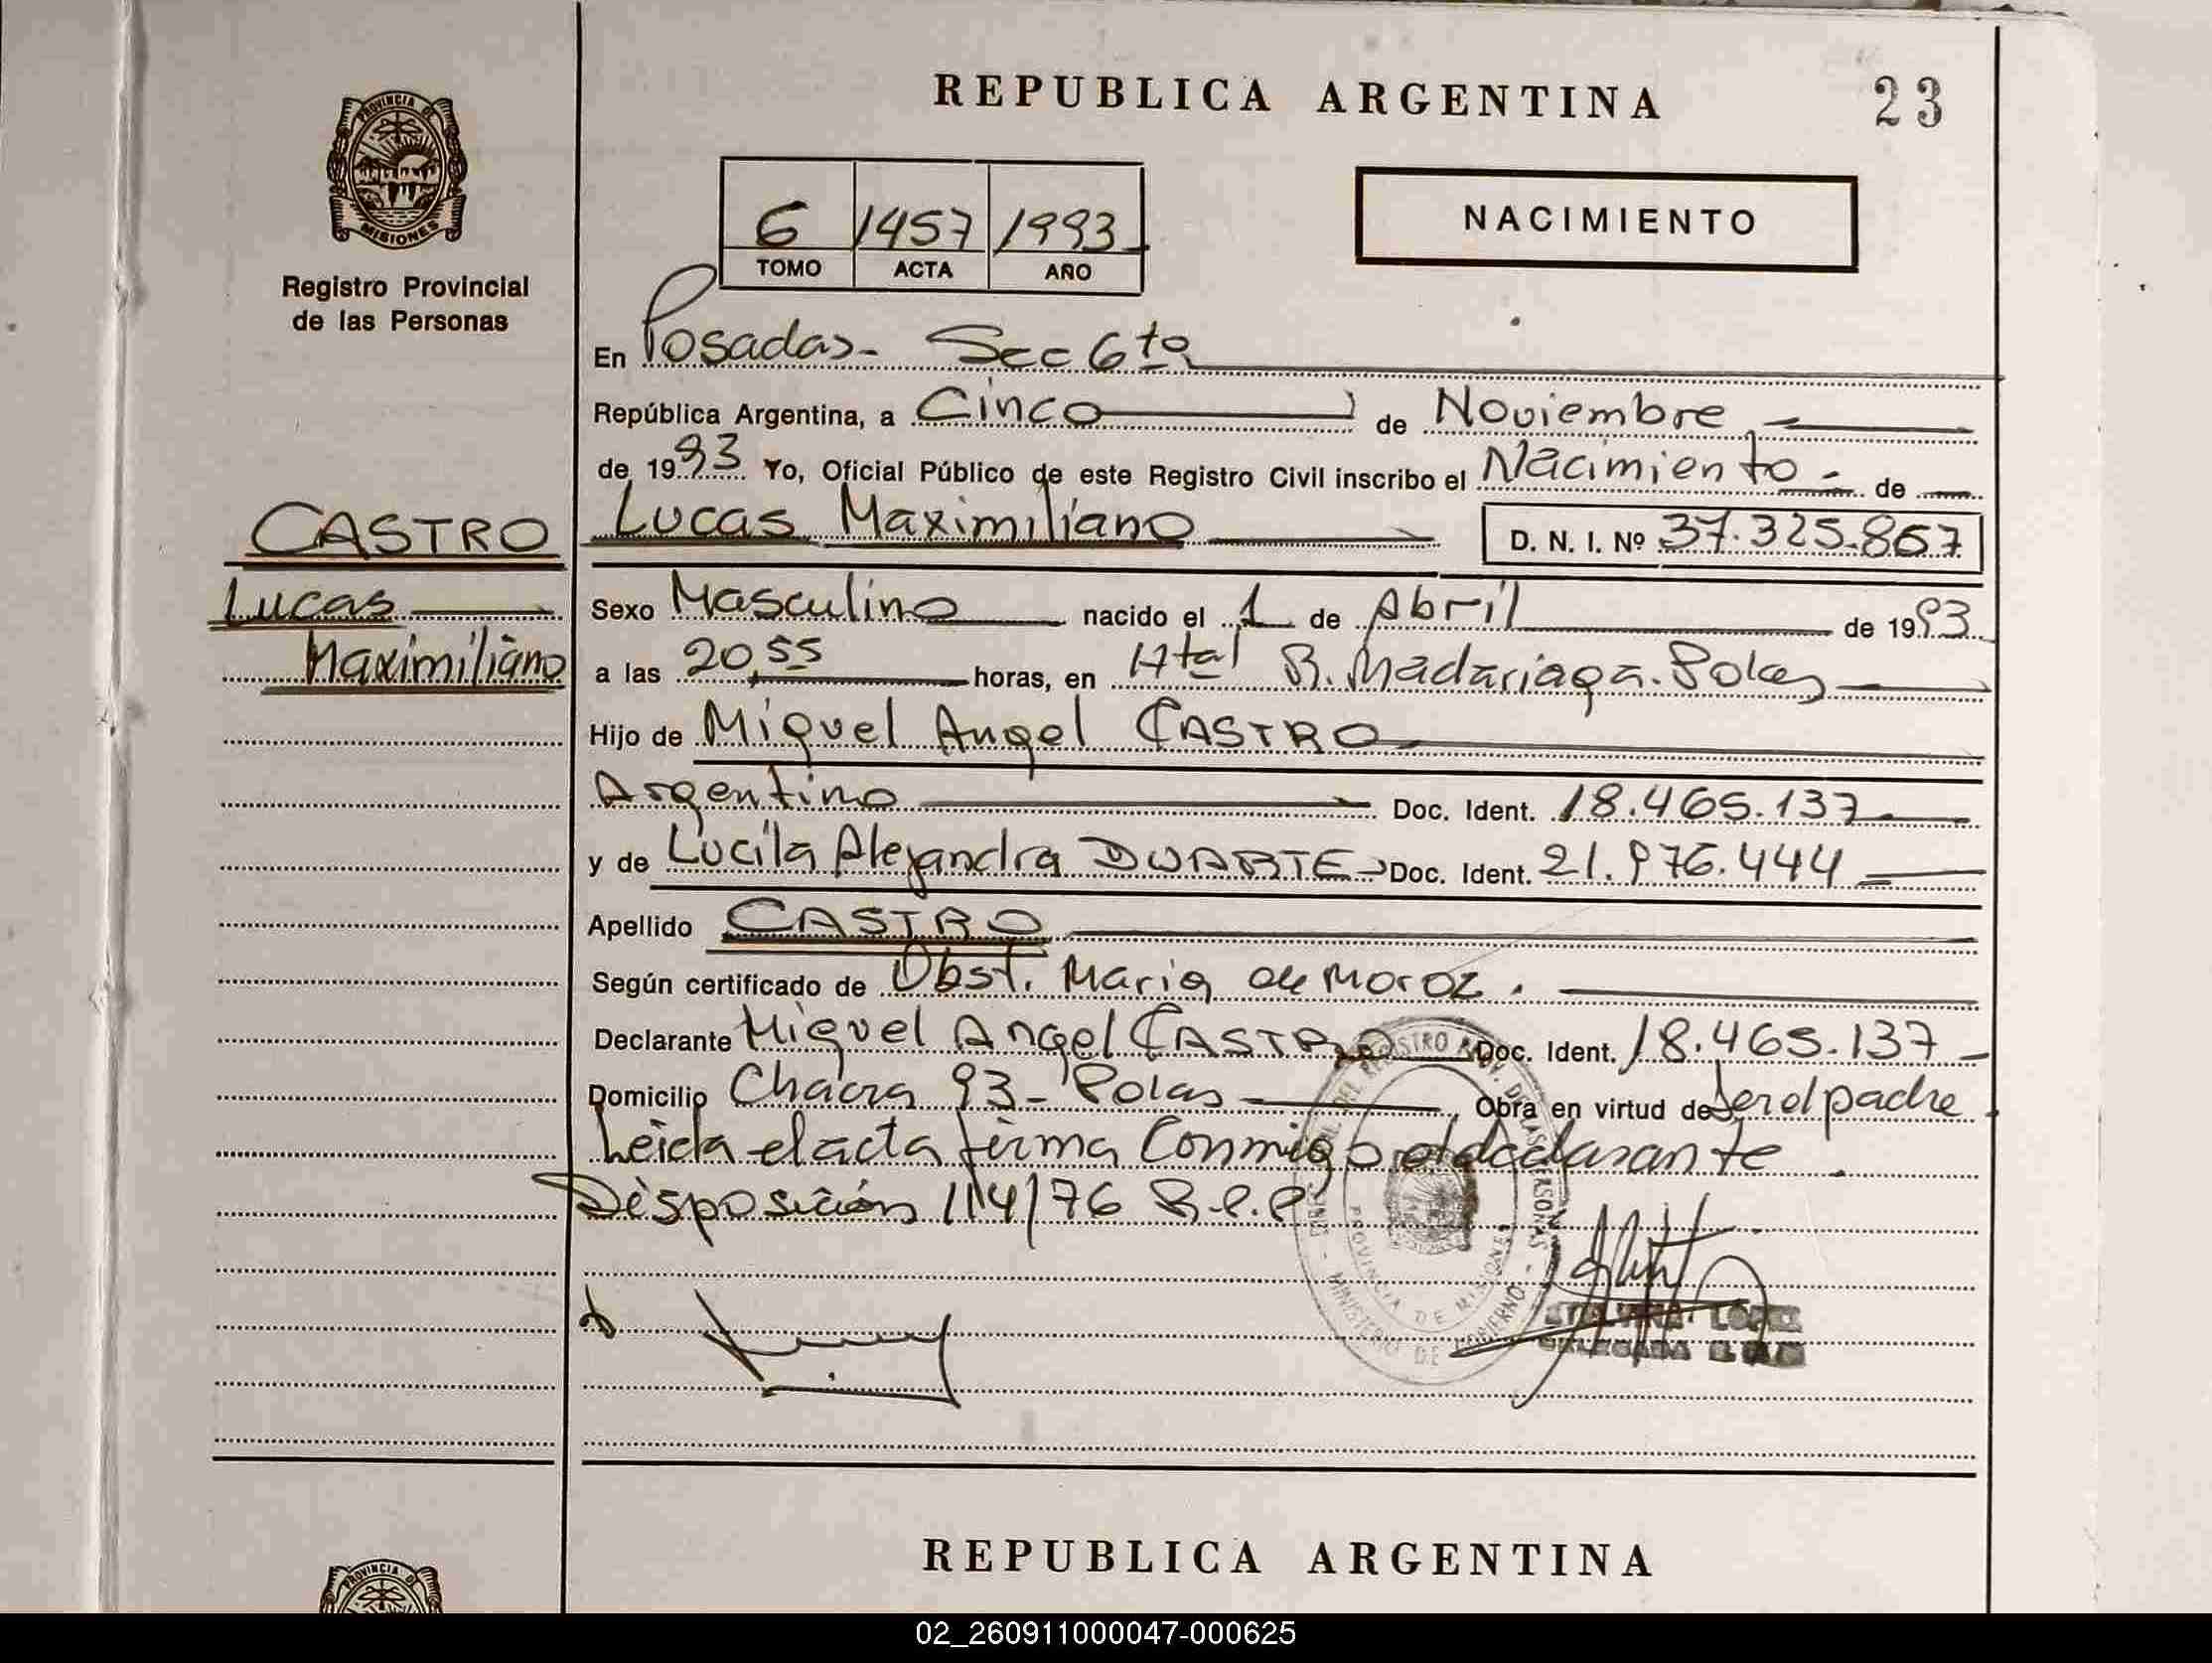 REPUBLICA ARGENTINA
23
PROVINCIA DE
MISIONES
Registro Provincial
de las Personas
6 1457 1993
TOMO ACTA AÑO
NACIMIENTO
En Posadas - Sec 6ta
República Argentina, a Cinco de Noviembre
de 1993 Yo, Oficial Público de este Registro Civil inscribo el Nacimiento de
CASTRO
Lucas
Maximiliano
Lucas Maximiliano D. N. I. Nº 37.325.867
Sexo Masculino nacido el 1 de Abril de 1993
a las 20,55 horas, en Htal R. Madariaga.
Hijo de Miguel Angel CASTRO
Argentino Doc. Ident. 18.465.137
y de Lucila Alejandra DUARTE Doc. Ident. 21.976.444
Apellido CASTRO
Según certificado de Obst. Maria de Moroz.
Declarante Miguel Angel CASTRO Doc. Ident. 18.465.137
Domicilio Chacra 93 - Obra en virtud de ser el padre
Leida el acta firma Conmigo el declarante.
Disposición 114/76 R.P.P
PROVINCIA DE MISIONES
MINISTERIO DE GOBIERNO
LOPEZ
DELEGADA
REPUBLICA ARGENTINA
PROVINCIA DE
02_260911000047-000625